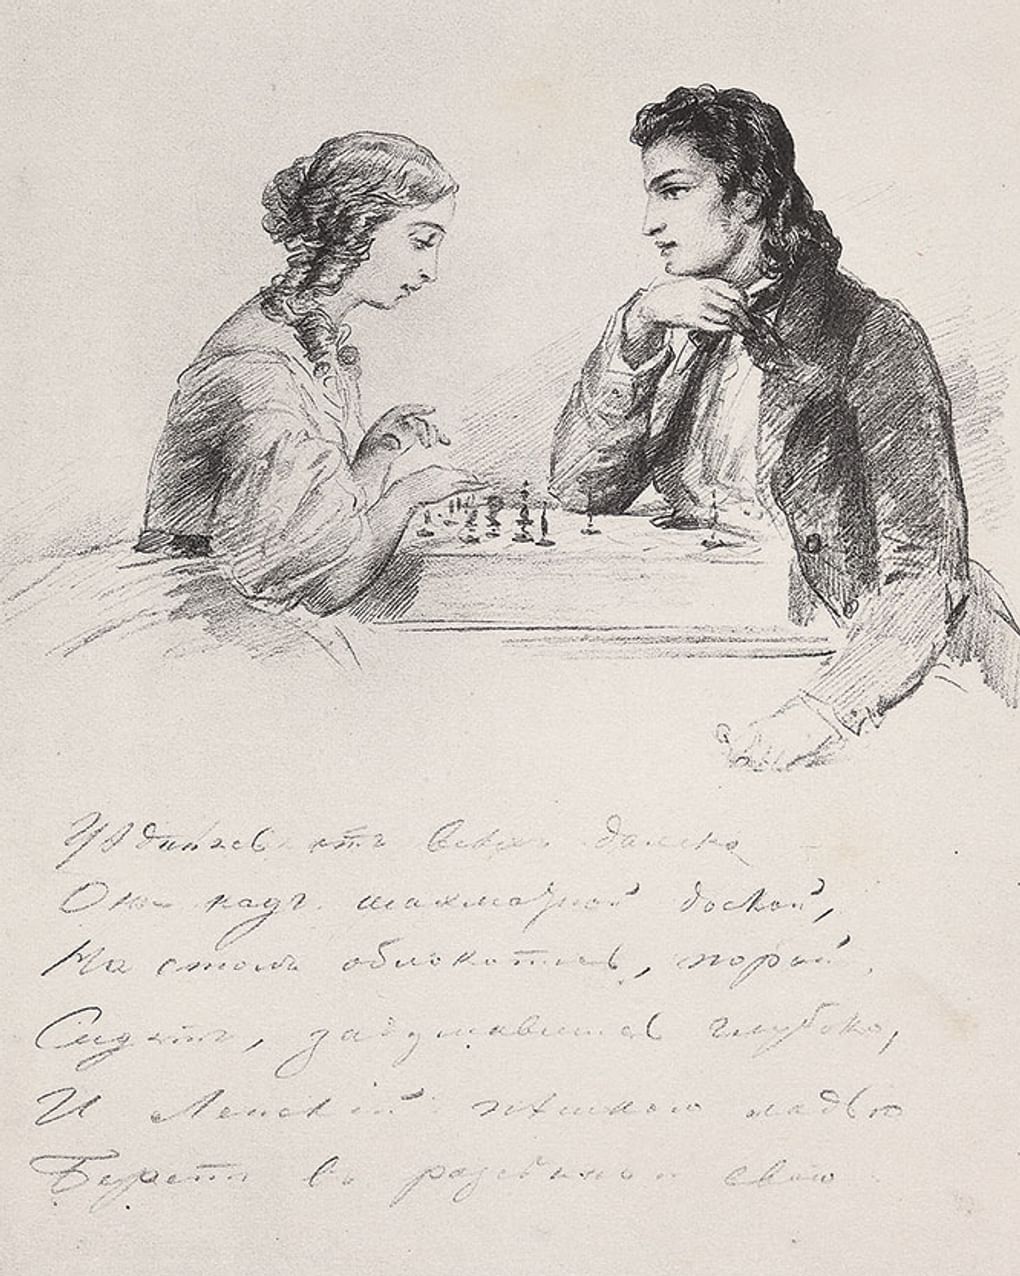 Уединясь отъ всѣхъ далеко
Они надъ шахматной доской,
На столъ облокотясь, порой
Сидятъ, задумавшись глубоко,
И Ленскій пѣшкою ладью
Беретъ въ разсѣяньи свою